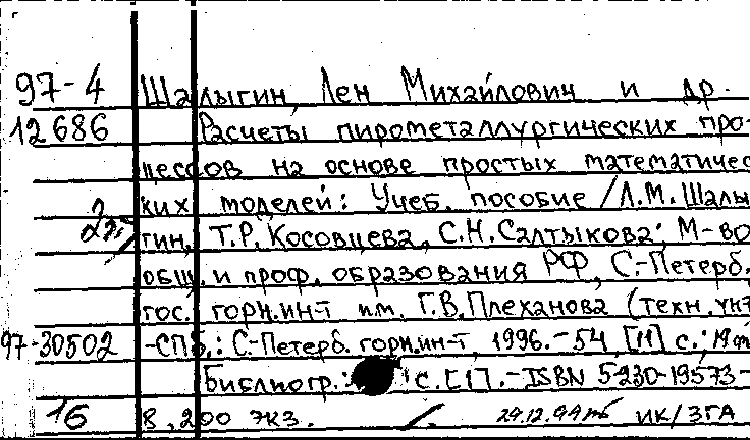 97-4 Шалыгин, Лен Михайлович и др.
12686 Расчеты пирометаллургических про-
цессов на основе простых математичес
ких моделей: Учеб. пособие /Л.М. Шалы
гин, Т.Р. Косовцева, С.Н. Салтыкова; М-во
общ. и проф. образования РФ, С.-Петерб.
гос. горн.ин-т им. Г.В. Плеханова (техн. ун-т
97-30502 -СПб.: С.-Петерб. горн.ин-т, 1996.-54, [11] с.;
Библиогр.: с. [1].-ISBN 5-230-19573-
16 8,200 экз. ИК/ЗГА